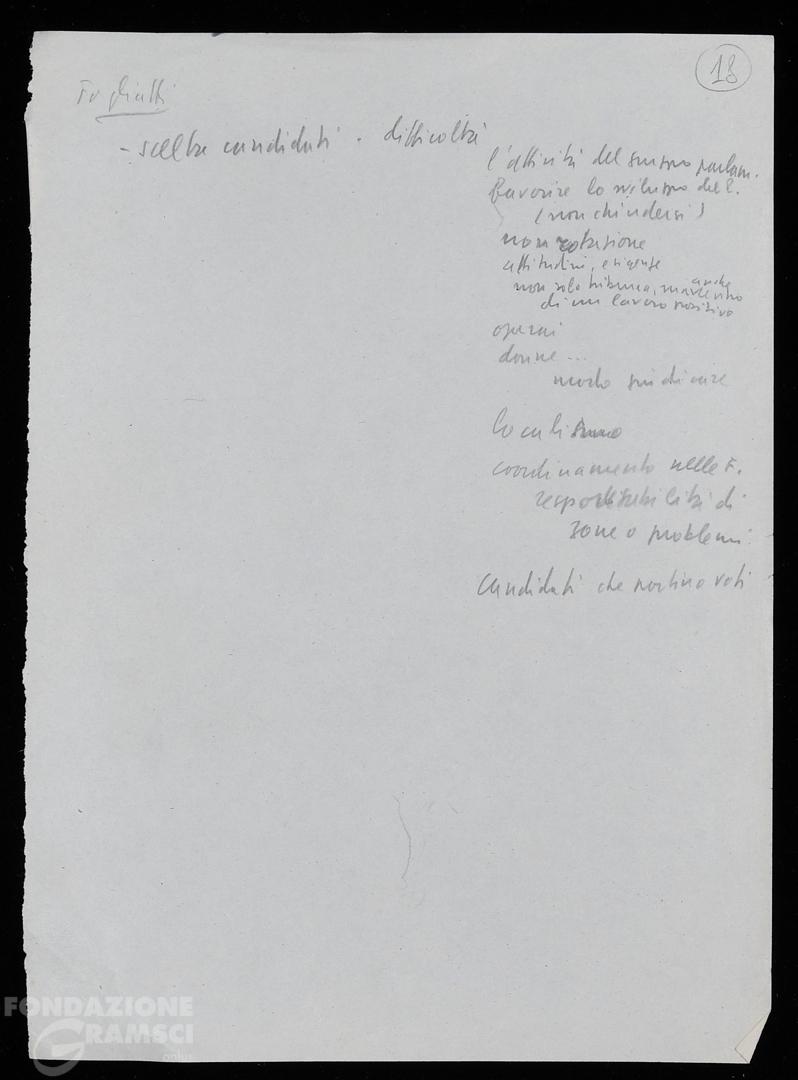 18
Togliatti
- scelta candidati . difficoltà
l'attività del gruppo parlam.
favorire lo sviluppo del
(non chiudersi)
non rotazione
attitudini, esigenze
non solo tribuna, ma anche centro
di un lavoro positivo
operai
donne ...
modo giudicare
localismo
coordinamento nelle F.
responsabilità di
zone o problemi
candidati che portino voti
FONDAZIONE
GRAMSCI